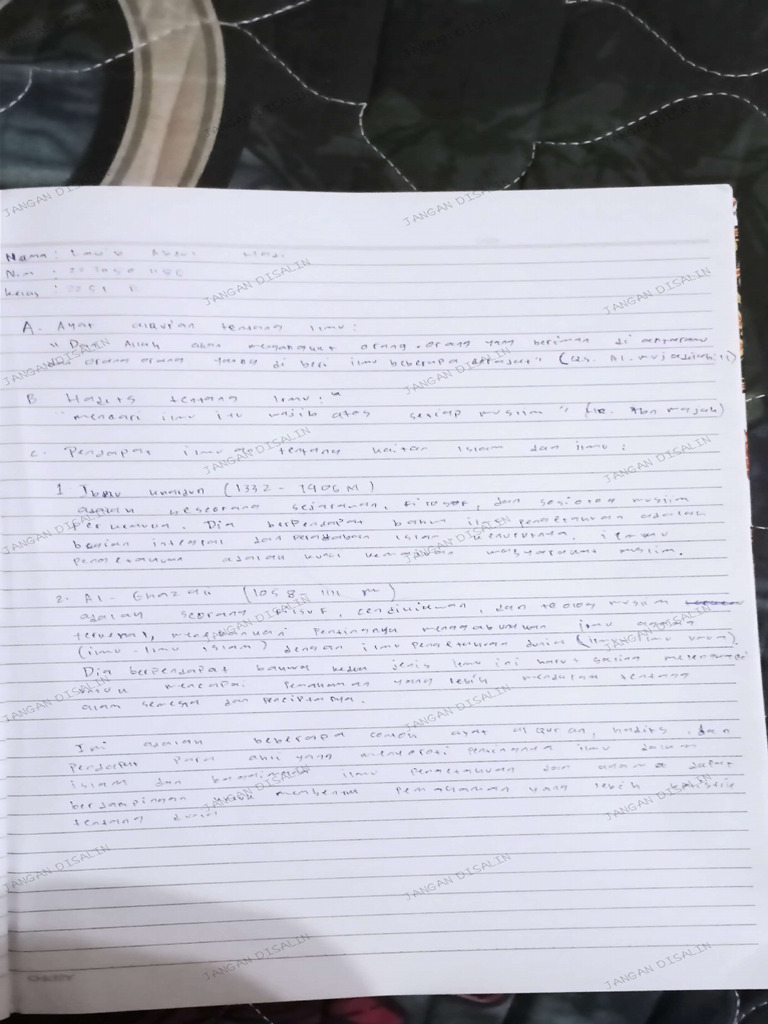 Nama :
Nim :
Kelas :
A. Ayat alqur'an tentang ilmu :
" Dan Allah akan mengangkat orang-orang yang beriman di antaramu
dan orang orang yang di beri ilmu beberapa derajat" (QS. Al-mujadilah: 11)
B Hadits tentang ilmu :
"mencari ilmu itu wajib atas setiap muslim" (Hr. Ibn majah)
C. Pendapat ilmu tentang kaitan Islam dan ilmu :
1. Ibnu khaldun (1332 - 1406 M)
adalah seseorang sejarawan, filosof, dan sosiolog muslim
terkemuka. Dia berpendapat bahwa ilmu pengetahuan adalah
bagian integral dari peradaban islam. menurutnya, ilmu
pengetahuan adalah kunci kemajuan masyarakat muslim.
2. Al - Ghazali (1058 - 1111 M)
adalah seorang filsuf, cendikiawan, dan teolog muslim
terkenal, menekankan pentingnya menggabungkan ilmu agama
(ilmu-ilmu islam) dengan ilmu pengetahuan dunia (ilmu-ilmu umum)
Dia berpendapat bahwa kedua jenis ilmu ini harus saling melengkapi
untuk mencapai pemahaman yang lebih mendalam tentang
alam semesta dan penciptanya.
Ini adalah beberapa contoh ayat al qur'an, hadits, dan
pendapat para ahli yang menyoroti pentingnya ilmu dalam
islam dan bagaimana ilmu pengetahuan dan agama dapat
berdampingan untuk membentuk pemahaman yang lebih holistik
tentang dunia
JANGAN DISALIN